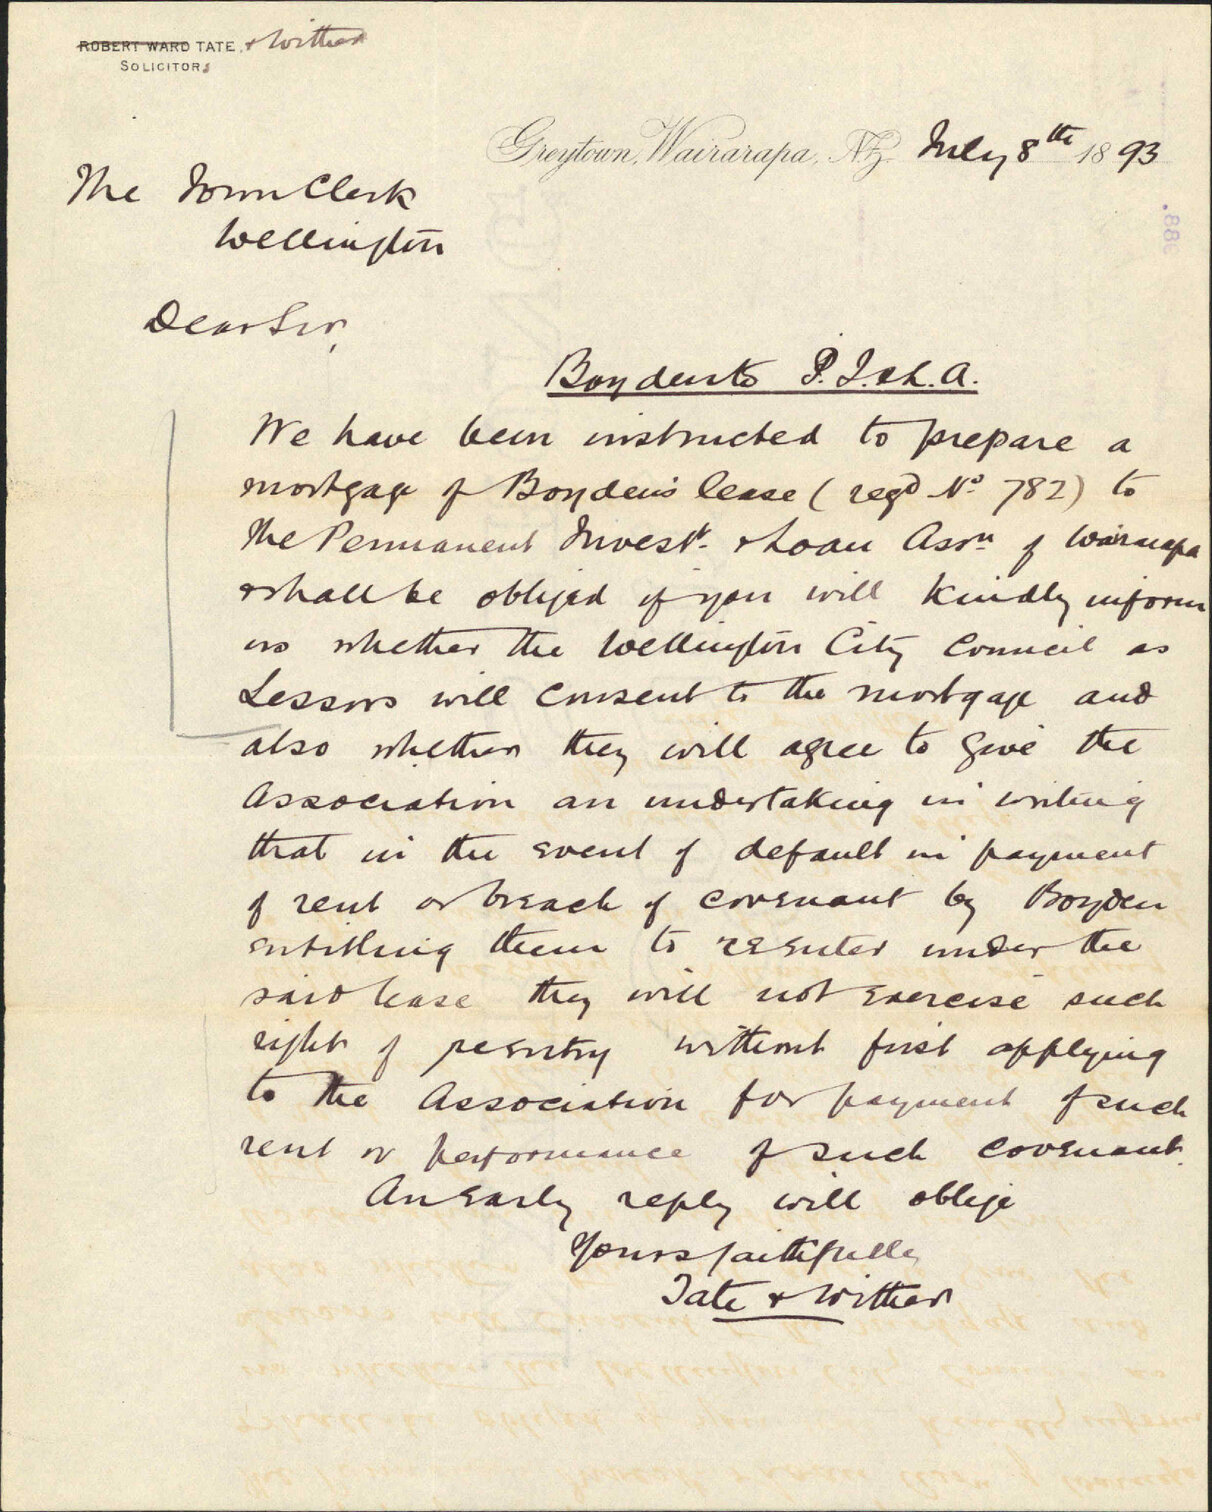 ROBERT WARD TATE & Wither
SOLICITORs
Greytown, Wairarapa, N.Z. July 8th 1893
The Town Clerk
Wellington
Dear Sir,
Boyden to P. I. & L. A.
We have been instructed to prepare a
mortgage of Boyden's lease (regd No 782) to
the Permanent Investt. & Loan Assn of Wairarapa
& shall be obliged if you will kindly inform
us whether the Wellington City Council as
Lessors will consent to the mortgage and
also whether they will agree to give the
Association an undertaking in writing
that in the event of default in payment
of rent or breach of covenant by Boyden
entitling them to reenter under the
said lease they will not exercise such
right of reentry without first applying
to the Association for payment of such
rent or performance of such covenant.
An early reply will oblige
Yours faithfully
Tate & Wither